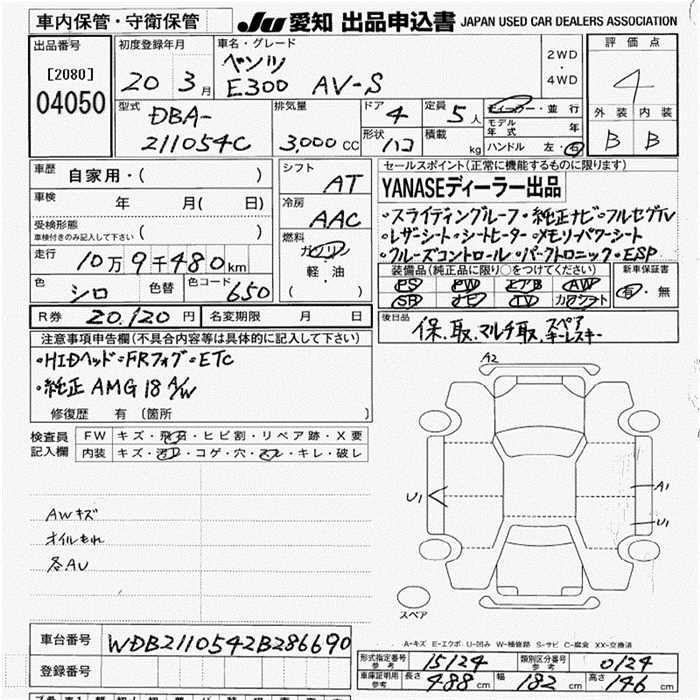 車内保管・守衛保管
JU 愛知 出品申込書 JAPAN USED CAR DEALERS ASSOCIATION
出品番号 初度登録年月 車名・グレード 評価点
[2080] 20 3月 ベンツ 2WD
04050 E300 AV-S ・4WD 4
型式 排気量 ドア 定員 ディーラー・並行 外装 内装
DBA- 4 5人 モデル年式 年 B B
211054C 3,000CC 形状 ハコ 積載 kg ハンドル 左・右
車歴 自家用・( ) シフト AT セールスポイント(正常に機能するものに限ります)
車検 年 月( 日) 冷房 YANASEディーラー出品
受検形態 AAC ・スライディングルーフ・純正ナビ・フルセグTV
車検付きのみ記入して下さい ( ) 燃料 ・レザーシート・シートヒーター・メモリーパワーシート
走行 10万9千480km ガソリン ・クルーズコントロール・パークトロニック・ESP
色 シロ 色替 色コード 650 軽・油 装備品(純正品に限り○をつけてください) 新車保証書
( ) PS PW エアB AW 有・無
SR ナビ TV カワシート
R券 20,120円 名変期限 月 日 後日品
保.取.マルチ取.スペアキーレスキー
注意事項申告欄(不具合内容等は具体的に記入して下さい)
・HIDヘッド・FRフォグ・ETC A2
・純正AMG 18 A/W
修復歴 有(箇所 )
検査員記入欄 FW キズ・飛石・ヒビ割・リペア跡・X要
内装 キズ・汚レ・コゲ・穴・スレ・キレ・破レ
U1 A1
AWキズ U1
オイルもれ
各AU
スペア
車台番号 WDB2110542B286690 A-キズ E-エクボ U-凹み W-補修跡 S-サビ C-腐食 XX-交換済
登録番号 形式指定番号 参考 15124 類別区分番号 参考 0124
車庫証明用 参考 長さ 488cm 幅 182cm 高さ 146cm